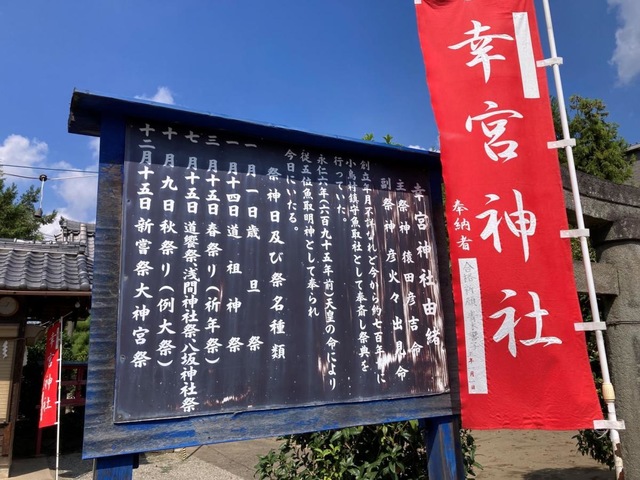 幸宮神社由緒
主祭神 猿田彦吉命
副祭神 彦火々出見命
創立年月不詳なれど今から約七百年前に
小鳥村鎮守魚取社として奉斎し祭典を
行っていた。
永仁二年(六百九十五年前)天皇の命により
従五位魚取明神として奉られ
今日にいたる。
祭神日及び祭名種類
一月一日歳旦祭
一月十四日道祖神祭
三月十五日春祭り(祈年祭)
七月十五日道饗祭浅間神社祭八坂神社祭
十月九日秋祭り(例大祭)
十二月十五日新嘗祭大神宮祭
幸宮神社
奉納者
合格祈願
神社